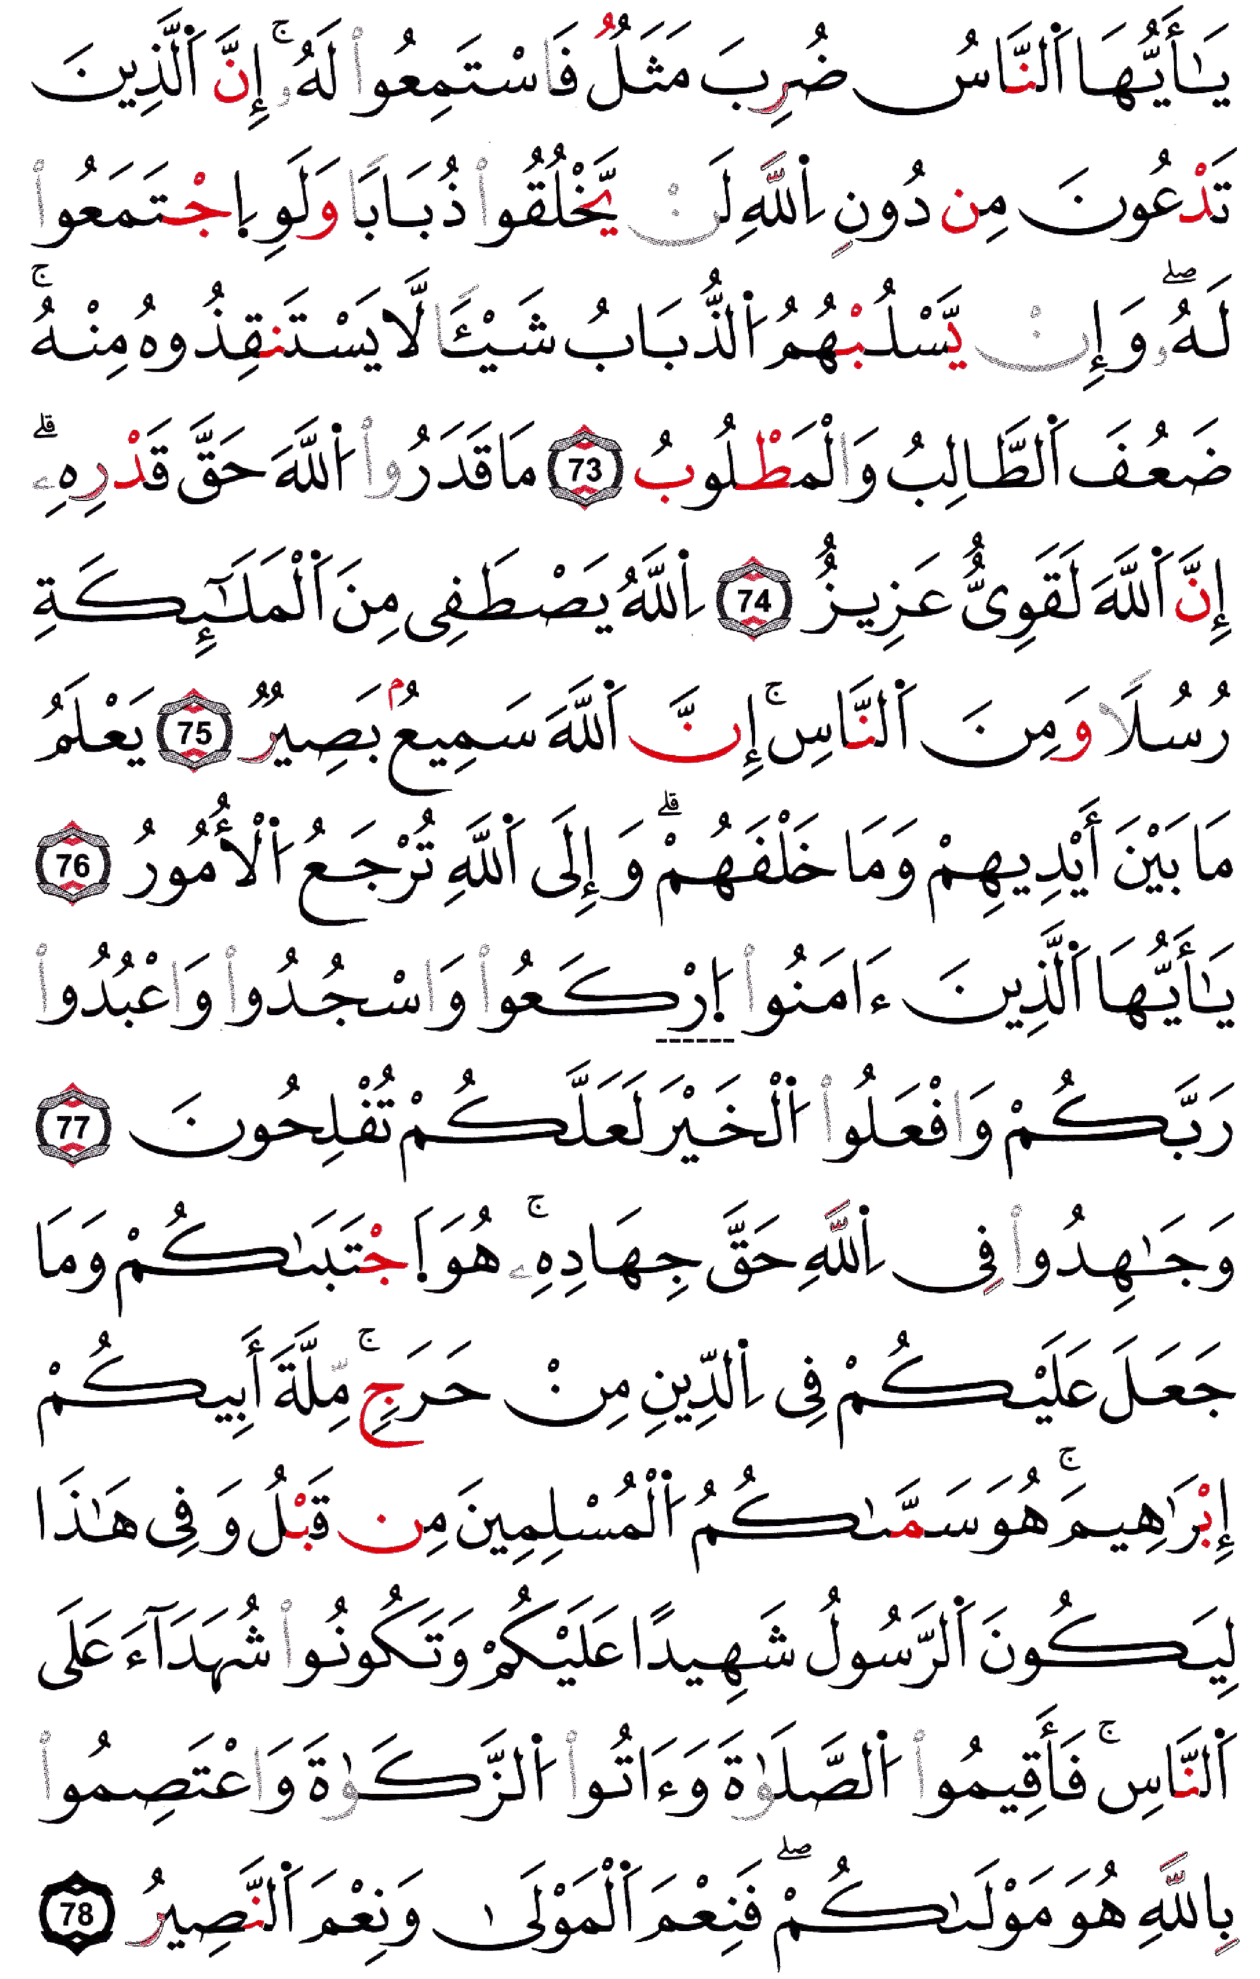 يَٰٓأَيُّهَا اَ۬لنَّاسُ ضُرِبَ مَثَلٞ فَاسْتَمِعُواْ لَهُۥٓۚ إِنَّ اَ۬لَّذِينَ
تَدْعُونَ مِن دُونِ اِ۬للَّهِ لَنْ يَّخْلُقُواْ ذُبَاباٗ وَلَوِ اِ۪جْتَمَعُواْ
لَهُۥۖ وَإِنْ يَّسْلُبْهُمُ اُ۬لذُّبَابُ شَيْـٔاٗ لَّا يَسْتَنقِذُوهُ مِنْهُۚ
ضَعُفَ اَ۬لطَّالِبُ وَالْمَطْلُوبُ 73 مَا قَدَرُواْ اُ۬للَّهَ حَقَّ قَدْرِهِۦٓۗ
إِنَّ اَ۬للَّهَ لَقَوِيٌّ عَزِيزٌ 74 اِ۬للَّهُ يَصْطَفِى مِنَ اَ۬لْمَلَٰٓئِكَةِ
رُسُلاٗ وَمِنَ اَ۬لنَّاسِۚ إِنَّ اَ۬للَّهَ سَمِيعُۢ بَصِيرٞ 75 يَعْلَمُ
مَا بَيْنَ أَيْدِيهِمْ وَمَا خَلْفَهُمْۗ وَإِلَى اَ۬للَّهِ تُرْجَعُ اُ۬لْأُمُورُ 76
يَٰٓأَيُّهَا اَ۬لَّذِينَ ءَامَنُواْ اُ۪رْكَعُواْ وَاسْجُدُواْ وَاعْبُدُواْ
رَبَّكُمْ وَافْعَلُواْ اُ۬لْخَيْرَ لَعَلَّكُمْ تُفْلِحُونَ 77
وَجَٰهِدُواْ فِى اِ۬للَّهِ حَقَّ جِهَادِهِۦۚ هُوَ اَ۪جْتَبَىٰكُمْ وَمَا
جَعَلَ عَلَيْكُمْ فِى اِ۬لدِّينِ مِنْ حَرَجٖۚ مِّلَّةَ أَبِيكُمْ
إِبْرَٰهِيمَۚ هُوَ سَمَّىٰكُمُ اُ۬لْمُسْلِمِينَ مِن قَبْلُ وَفِى هَٰذَا
لِيَكُونَ اَ۬لرَّسُولُ شَهِيدًا عَلَيْكُمْ وَتَكُونُواْ شُهَدَآءَ عَلَى
اَ۬لنَّاسِۚ فَأَقِيمُواْ اُ۬لصَّلَوٰةَ وَءَاتُواْ اُ۬لزَّكَوٰةَ وَاعْتَصِمُواْ
بِاللَّهِ هُوَ مَوْلَىٰكُمْۖ فَنِعْمَ اَ۬لْمَوْلَىٰ وَنِعْمَ اَ۬لنَّصِيرُ 78